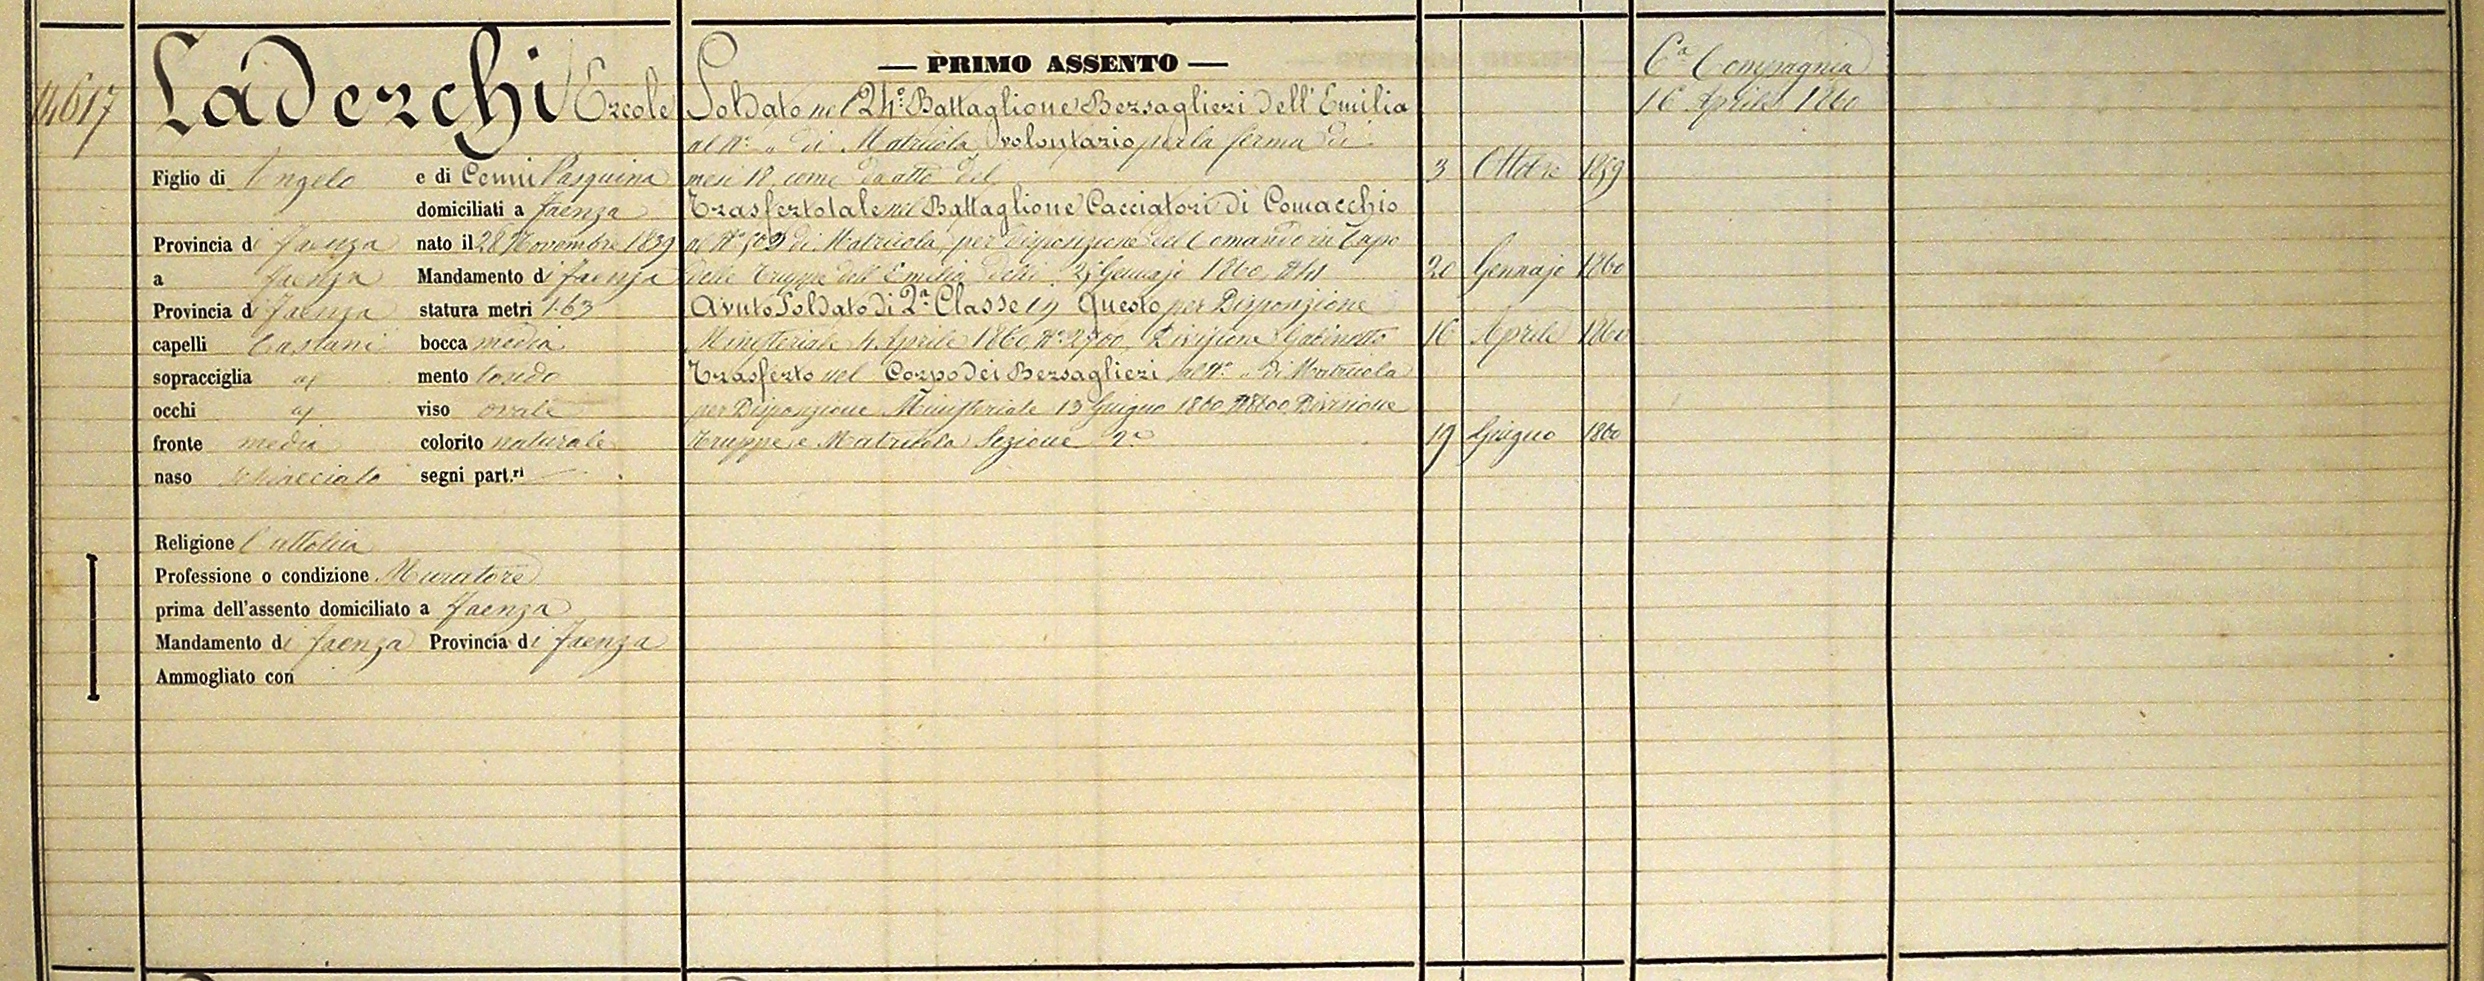 14617
Laderchi Ercole
Figlio di Angelo e di Cenni Pasquina
domiciliati a Faenza
Provincia di Faenza nato il 28 Novembre 1839
a Faenza Mandamento di Faenza
Provincia di Faenza statura metri 1.63
capelli Castani bocca media
sopracciglia mento tondo
occhi viso ovale
fronte media colorito naturale
naso schiacciato segni part.ri
Religione Cattolica
Professione o condizione Muratore
prima dell'assento domiciliato a Faenza
Mandamento di Faenza Provincia di Faenza
Ammogliato con
— PRIMO ASSENTO —
Soldato nel 24.° Battaglione Bersaglieri dell'Emilia
al N.° „ di Matricola volontario per la ferma di
mesi 18 come da atto del 3 Ottobre 1859
Trasferto tale nel Battaglione Cacciatori di Comacchio
al N.° 509 di Matricola per disposizione del Comando in Capo
delle Truppe dell'Emilia delli Gennajo 1860 20 Gennajo 1860
Avuto Soldato di 2.a Classe in Questo per Disposizione
Ministeriale 4 Aprile 1860 N.° 2700 Divisione Gabinetto 16 Aprile 1860
Trasferto nel Corpo dei Bersaglieri al N.° „ di Matricola
per Disposizione Ministeriale 13 Giugno 1860 N.8600 Divisione
Truppe e Matricola Sezione 2.a 19 Giugno 1860
6.a Compagnia
16 Aprile 1860